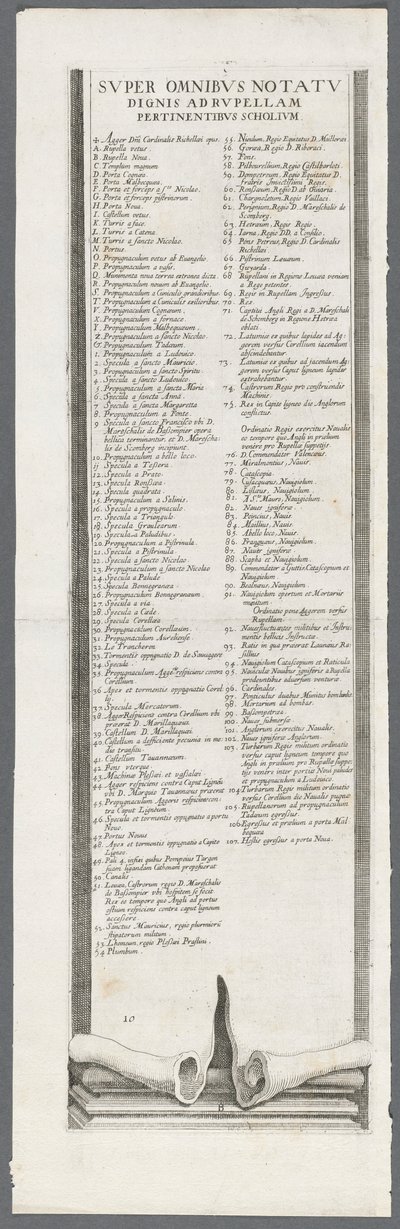 SVPER OMNIBVS NOTATV
DIGNIS AD RVPELLAM
PERTINENTIBVS SCHOLIVM
Agger Dni Cardinalis Richellai opus.
A. Rupella vetus.
B. Rupella Noua.
C. Templum magnum
D. Porta Cognea
E. Porta Malbequea.
F. Porta et forceps a Sto Nicolao.
G. Porta et forceps pistrinorum.
H. Porta Noua
I. Castellum vetus.
K. Turris a face.
L. Turris a Catena.
M. Turris a sancto Nicolao.
N. Portus.
O. Propugnaculum vetus ab Euangelio
P. Propugnaculum a vasis.
Q. Munimenta noua terrea extranea dicta.
R. Propugnaculum nouum ab Euangelio.
S. Propugnaculum a Cuniculis grandioribus.
T. Propugnaculum a Cuniculis exilioribus.
V. Propugnaculum Cogneum.
X. Propugnaculum a fornace.
Y. Propugnaculum Malbequeum.
Z. Propugnaculum a sancto Nicolao
1. Propugnaculum a Ludouico.
2. Specula a sancto Mauricio
3. Propugnaculum a sancto Spiritu
4. Specula a sancto Ludouico.
5. Propugnaculum a sancta Maria
6. Specula a sancta Anna
7. Specula a sancta Margaretta
8. Propugnaculum a Ponte.
9. Specula a sancto Francisco vbi D.
Mareschalis de Bassompier opera
bellica terminantur, et D. Marescha-
lis de Scomberg incipiunt.
10. Propugnaculum a bello loco.
11. Specula a Tessera
12. Specula a Prato.
13. Specula Ronssea
14. Specula quadrata
15. Propugnaculum a Salinis.
16. Specula a propugnaculo
17. Specula a Triangulo
18. Specula Groulearum
19. Specula a Paludibus
20. Propugnaculum a Pistrinula
21. Specula a Pistrinula
22. Specula a sancto Nicolao
23. Propugnaculum a sancto Nicolao
24. Specula a Palude
25. Specula Bonagranea
26. Propugnaculum Bonagraneum.
27. Specula a via
28. Specula a Cæde
29. Specula Corellæa
30. Propugnaculum Corellæum.
31. Propugnaculum Aureliense
32. La Trancheren
33. Tormentis oppugnatio D. de Sauuaggere
34. Specula
35. Propugnaculum Aggeris respiciens contra
Corellum
36. Apex et tormentis oppugnatio Corel
lis
37. Specula Mercatorum.
38. Agger Respiciens contra Corellum vbi
præerat D. Marillaquus.
39. Castellum D. Marillaquai.
40. Castellum a defficiente pecunia in me
dio transitu.
41. Castellum Tauannæum.
42. Fons vterque
43. Machinæ Plessæi et
44. Agger respiciens contra Caput Ligneũ
vbi D. Marquis Tauannæus præerat
45. Propugnaculum Aggeris respiciens con-
tra Caput Ligneum.
46. Specula et tormentis oppugnatio a portu
Nouo.
47. Portus Nouus
48. Apex et tormentis oppugnatio a Capite
Ligneo
49. Pali 4. infixi quibus Pompeius Targon
suam ligandam Cathenam proposuerat
50. Canalis.
51. Leuca, Castrorum regio D. Mareschalis
de Bassompier vbi hospitem se fecit
Rex eo tempore quo Angli ad portus
ostium respiciens contra caput ligneum
accessere.
52. Sanctus Mauricius, regio plurimorū
stipatorum militum.
53. L'homeau, regio Plessæi Praslini.
54. Plumbum.
55. Nieulum, Regio Equitatus D. Mullerai
56. Goræa, Regio D. Riboraci.
57. Pons.
58. Pelboreellum, Regio Castilbarloti
59. Dompetreum, Regio Equitatus D.
fratris Inuictissimi Regis.
60. Ronssaium, Regio D. ab Oinaria.
61. Chargnoletum, Regio Vaillaci
62. Perignium, Regio D. Mareschalis de
Scomberg.
63. Hetræum, Regio Regis.
64. Iarna, Regio DD. a Consilio.
65. Pons Petreus, Regio D. Cardinalis
Richellæi
66. Pistrinum Lauæum.
67. Guyarda
68. Rupellani in Regione Leuca veniam
a Rege petentes
69. Regis in Rupellam Ingressus
70. Rex
71. Captiui Angli Regi a D. Mareschali
de Schomberg in Regione Hetræa
oblati.
72. Latumiæ ex quibus lapides ad Ag-
gerem versus Corellum iacendum
abscindebantur.
73. Latumiæ ex quibus ad jacendum Ag-
gerem versus Caput ligneum lapides
extrahebantur.
74. Castrorum Regio pro construendis
Machinis
75. Rex in Capite ligneo die Anglorum
conflictus.
Ordinatio Regis exercitus Naualis
eo tempore quo Angli in prælium
venère pro Rupella suppetijs.
76. D. Commendator Valencæus.
77. Miralmontius, Nauis
78. Catascopia.
79. Cusacquæus, Nauigiolum.
80. Lislæus, Nauigiolum
81. A Sto Mauro, Nauigiolum.
82. Naues igniferæ
83. Poincius, Nauis.
84. Maillius, Nauis
85. Abello loco, Nauis.
86. Fraguæus, Nauigiolum.
87. Nauis ignifera
88. Scapha et Nauigiolum.
89. Commendator a Guttis, Catascopium et
Nauigiolum
90. Beolnæus, Nauigiolum
91. Nauigiolum opertum et Mortarijs
munitum
Ordinatio pone Aggerem versus
Rupellam.
92. Naues fluctuantes militibus et Instru-
mentis bellicis Instructæ.
93. Ratis in qua præerat Launæus Ra-
sillius
94. Nauigiolum Catascopium et Raticula
95. Nauiculæ Nauibus igniferis a Rupella
prodeuntibus aduersum venturæ.
96. Cardinales
97. Ponticulus duabus Munitus bombardis
98. Mortarium ad bombas.
99. Bassompetræa.
100. Naues submersæ
101. Anglorum exercitus Naualis.
102. Naues igniferæ Anglorum.
103. Turbarum Regis militum ordinatio
versus caput ligneum tempore quo
Angli in prælium pro Rupella suppe-
tijs venère inter portus Noui paludes
et propugnaculum a Ludouico.
104. Turbarum Regis militum ordinatio
versus Corellum die Naualis pugnæ
105. Rupellanorum ad propugnaculum
Tadæum egressus
106. Egressus et prælium a porta Mal
bequea
107. Hostis egressus a porta Noua.
10
B